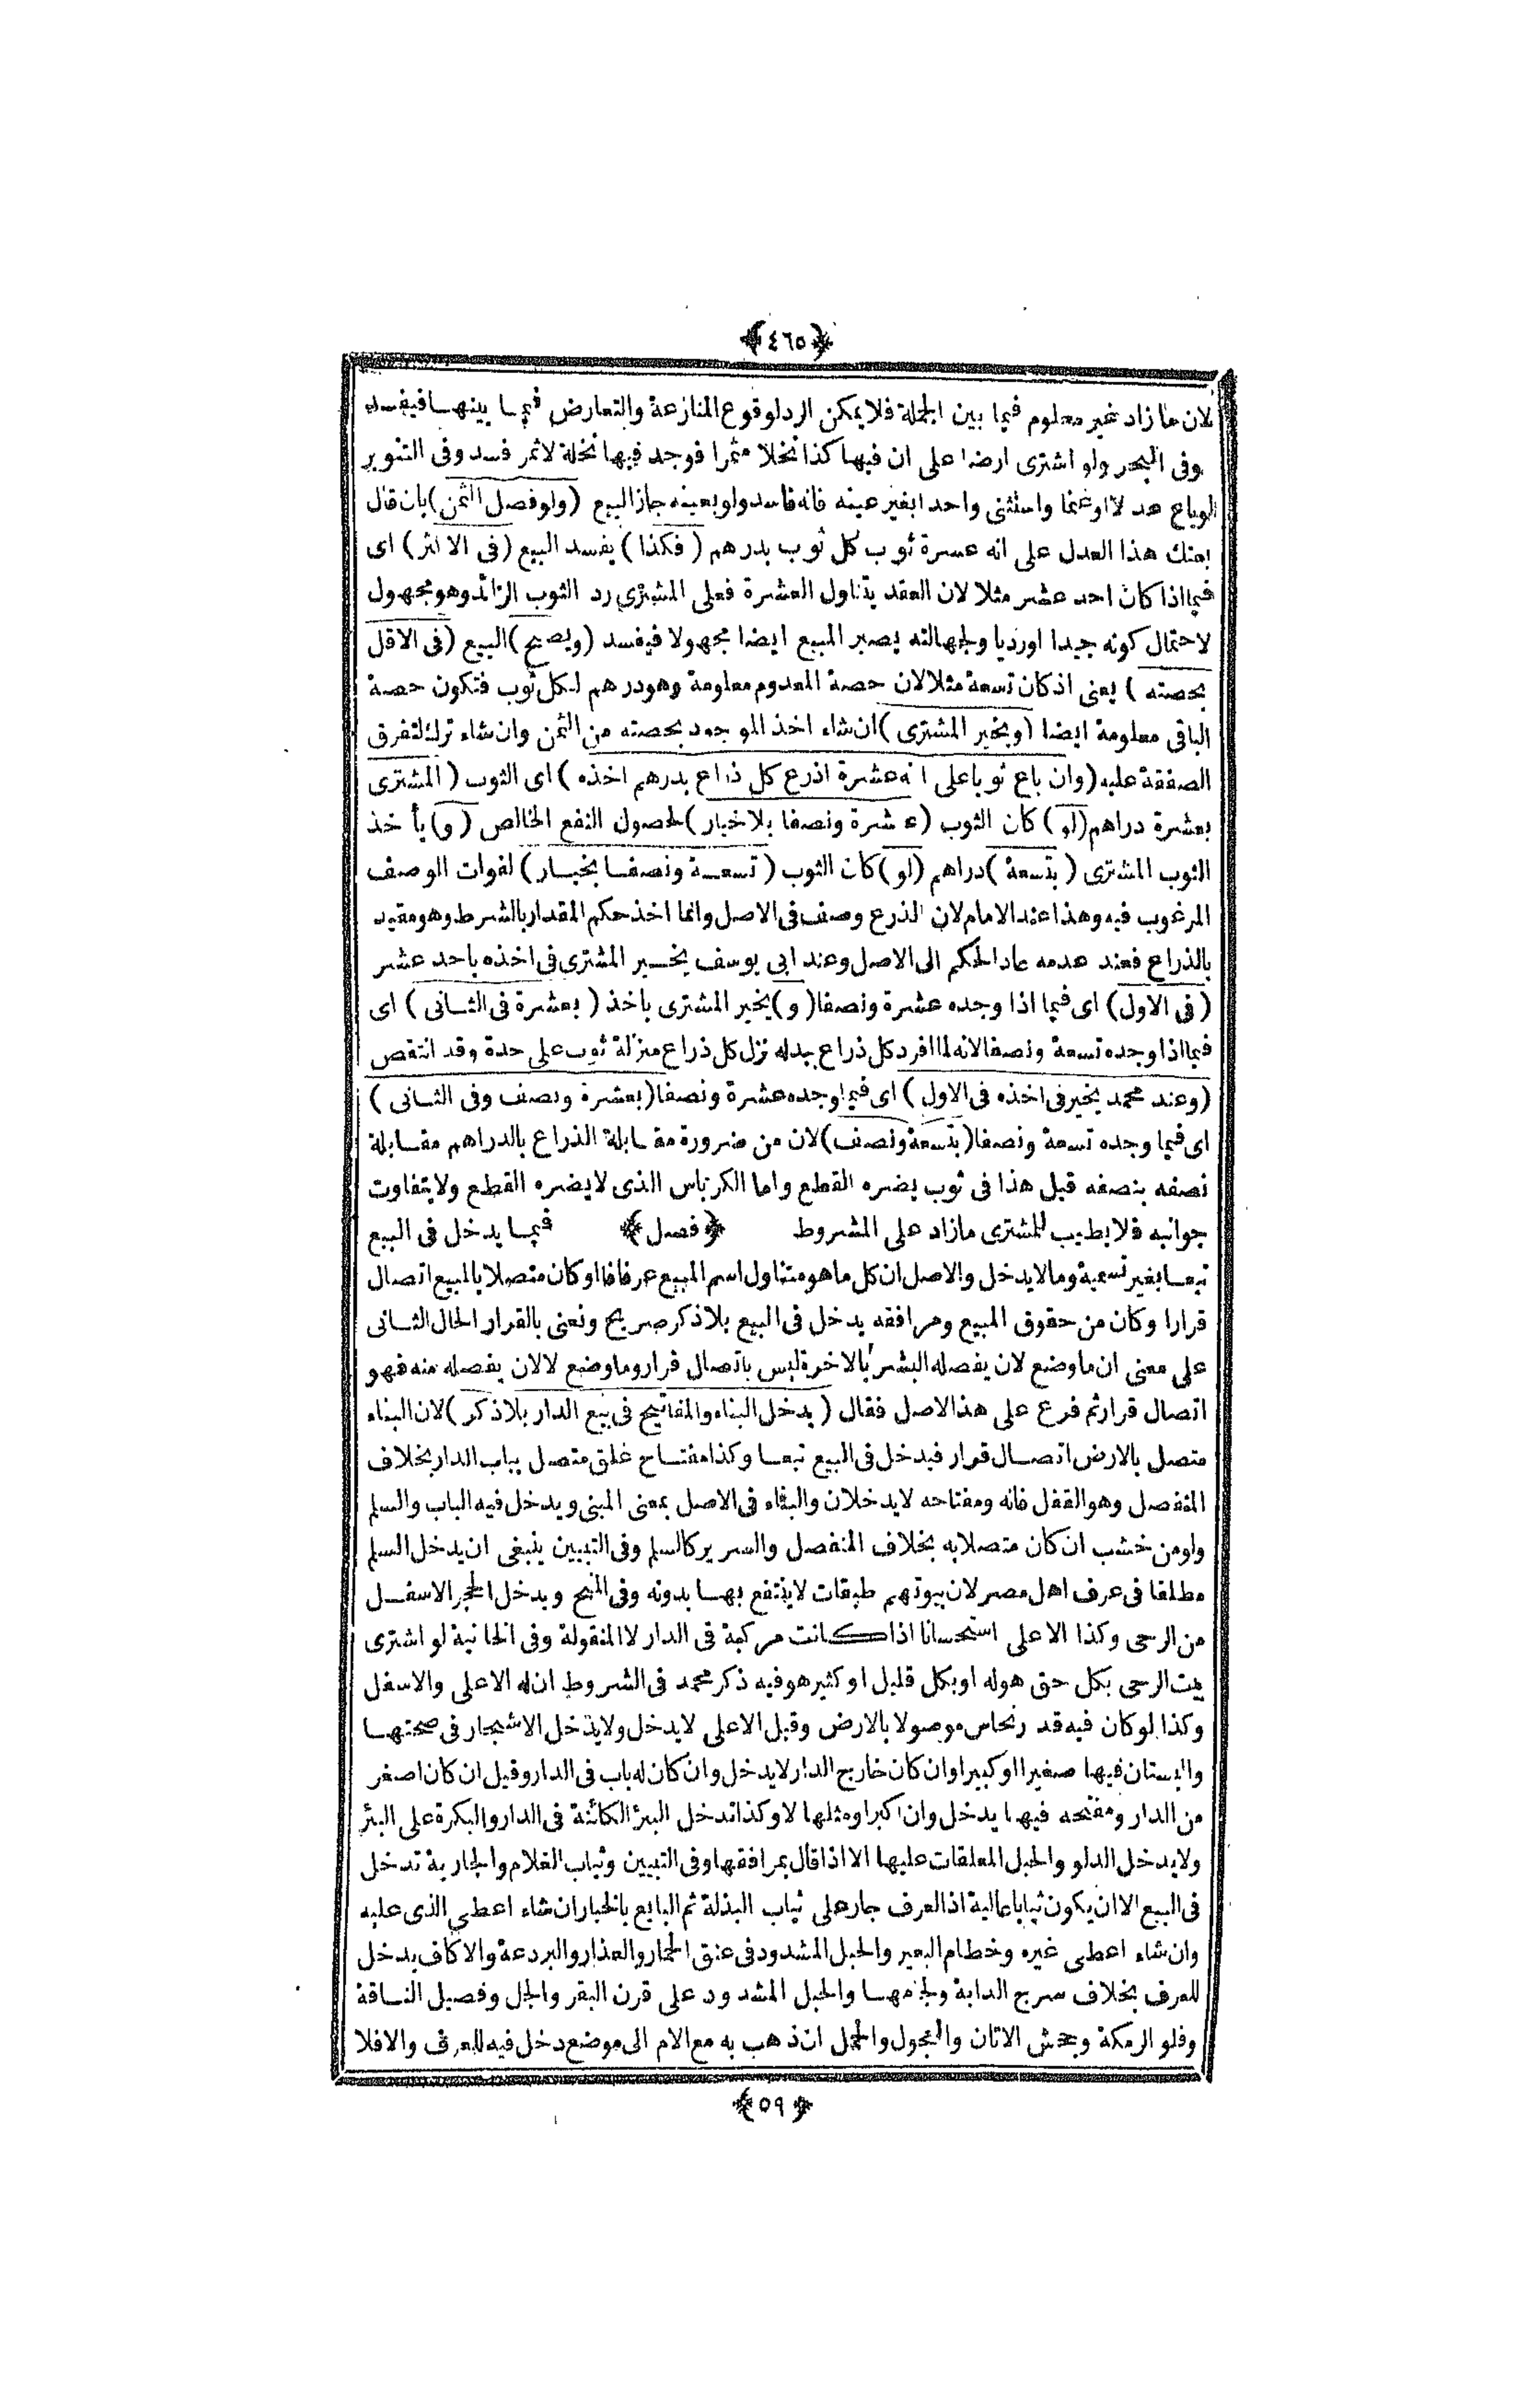 ﴿٤٦٥﴾
لان ما زاد غير معلوم فيما بين الجملة فلا يمكن الرد لوقوع المنازعة والتعارض فيما بينهما فيفسد
وفى البحر ولو اشترى ارضا على ان فيها كذا نخلا مثمرا فوجد فيها نخلة لا تثمر فسد وفى التنوير
لو باع عدلا او غنما واستثنى واحدا بغير عينه فانه فاسد ولو بعينه جاز البيع (ولو فصل الثمن) بان قال
بعتك هذا العدل على انه عشرة ثوب كل ثوب بدرهم (فكذا) يفسد البيع (فى الاكثر) اى
فيما اذا كان احد عشر مثلا لان العقد يتناول العشرة فعلى المشترى رد الثوب الزائد وهو مجهول
لاحتمال كونه جيدا او رديا ولجهالته يصير المبيع ايضا مجهولا فيفسد (ويصح) البيع (فى الاقل
بحصته) يعنى اذ كان تسعة مثلا لان حصة المعدوم معلومة وهو درهم لكل ثوب فتكون حصة
الباقى معلومة ايضا (ويخير المشترى) ان شاء اخذ الموجود بحصته من الثمن وان شاء ترك لتفرق
الصفقة عليه (وان باع ثوبا على انه عشرة اذرع كل ذراع بدرهم اخذه) اى الثوب (المشترى
بعشرة دراهم (لو) كان الثوب (عشرة ونصفا بلا خيار) لحصول النفع الخالص (و) يأخذ
الثوب المشترى (بتسعة) دراهم (لو) كان الثوب (تسعة ونصفا بخيار) لفوات الوصف
المرغوب فيه وهذا عند الامام لان الذرع وصف فى الاصل وانما اخذ حكم المقدار بالشرط وهو مقيد
بالذراع فعند عدمه عاد الحكم الى الاصل وعند ابى يوسف يخير المشترى فى اخذه باحد عشر
(فى الاول) اى فيما اذا وجده عشرة ونصفا (و) يخير المشترى باخذ (بعشرة فى الثانى) اى
فيما اذا وجده تسعة ونصفا لانه لما افرد كل ذراع ببدله نزل كل ذراع منزلة ثوب على حدة وقد انتقص
(وعند محمد يخير فى اخذه فى الاول) اى فيما وجده عشرة ونصفا (بعشرة ونصف وفى الثانى)
اى فيما وجده تسعة ونصفا (بتسعة ونصف) لان من ضرورة مقابلة الذراع بالدراهم مقابلة
نصفه بنصفه قيل هذا فى ثوب يضره القطع واما الكرباس الذى لا يضره القطع ولا يتفاوت
جوانبه فلا يطيب للمشترى ما زاد على المشروط ﴿فصل﴾ فيما يدخل فى البيع
تبعا بغير تسمية وما لا يدخل والاصل ان كل ما هو متناول اسم المبيع عرفا او كان متصلا بالمبيع اتصال
قرارا وكان من حقوق المبيع ومرافقه يدخل فى البيع بلا ذكر صريح ونعنى بالقرار الحال الثانى
على معنى ان ما وضع لان يفصله البشر بالاخرة ليس باتصال قرار وما وضع لا لان يفصله منه فهو
اتصال قرار ثم فرع على هذا الاصل فقال (يدخل البناء والمفاتيح فى بيع الدار بلا ذكر) لان البناء
متصل بالارض اتصال قرار فيدخل فى البيع تبعا وكذا مفتاح غلق متصل بباب الدار بخلاف
المنفصل وهو القفل فانه ومفتاحه لا يدخلان والبناء فى الاصل بمعنى المبنى ويدخل فيه الباب والسلم
ولو من خشب ان كان متصلا به بخلاف المنفصل والسرير كالسلم وفى التبيين ينبغى ان يدخل السلم
مطلقا فى عرف اهل مصر لان بيوتهم طبقات لا ينتفع بها بدونه وفى المنح ويدخل الحجر الاسفل
من الرحى وكذا الاعلى استحسانا اذا كانت مركبة فى الدار لا المنقولة وفى الخانية لو اشترى
بيت الرحى بكل حق هو له او بكل قليل او كثير هو فيه ذكر محمد فى الشروط ان له الاعلى والاسفل
وكذا لو كان فيه قدر نحاس موصولا بالارض وقيل الاعلى لا يدخل ولا يدخل الاشجار فى صحتها
والبستان فيها صغيرا او كبيرا وان كان خارج الدار لا يدخل وان كان له باب فى الدار وقيل ان كان اصغر
من الدار ومفتحه فيها يدخل وان اكبر او مثلها لا وكذا تدخل البئر الكائنة فى الدار والبكرة على البئر
ولا يدخل الدلو والحبل المعلقات عليها الا اذا قال بمرافقها وفى التبيين وثياب الغلام والجارية تدخل
فى البيع الا ان يكون ثيابا عالية اذ العرف جار على ثياب البذلة ثم البايع بالخيار ان شاء اعطى الذى عليه
وان شاء اعطى غيره وخطام البعير والحبل المشدود فى عنق الحمار والعذار والبردعة والاكاف يدخل
للعرف بخلاف سرج الدابة ولجامها والحبل المشدود على قرن البقر والجل وفصيل الناقة
وفلو الرمكة وجحش الاتان والعجول والحمل ان ذهب به مع الام الى موضع دخل فيه للعرف والا فلا
﴿٥٩﴾